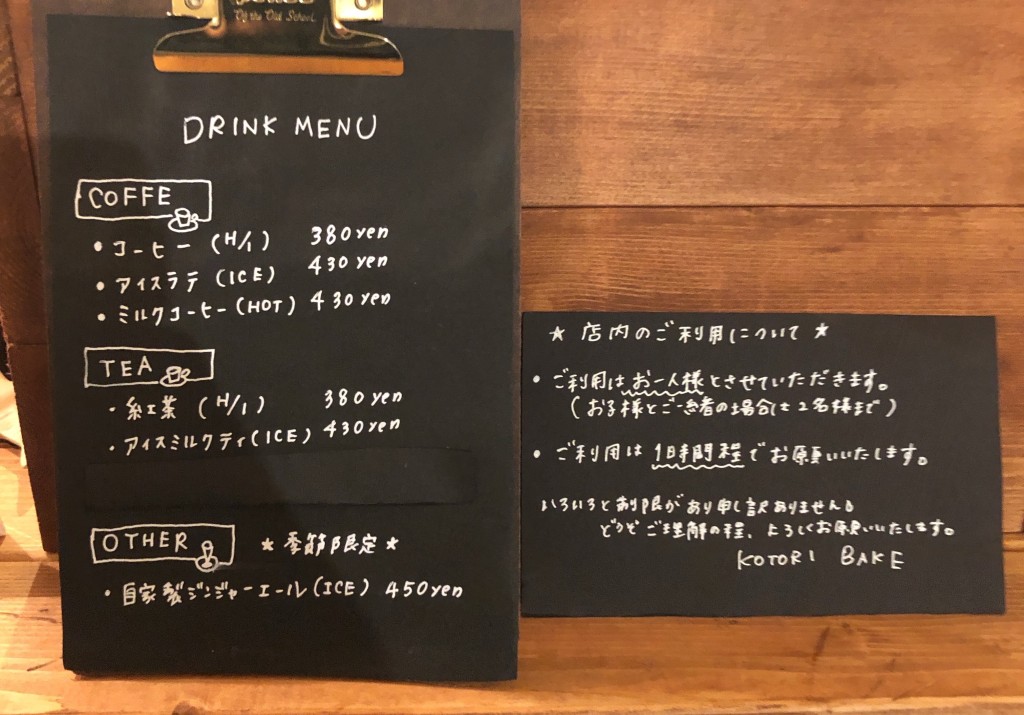 Of the Old School
DRINK MENU
COFFE
・コーヒー (H/I) 380yen
・アイスラテ (ICE) 430yen
・ミルクコーヒー(HOT) 430yen
TEA
・紅茶 (H/I) 380yen
・アイスミルクティ(ICE) 430yen
OTHER ★季節限定★
・自家製ジンジャーエール(ICE) 450yen
★ 店内のご利用について ★
・ご利用はお一人様とさせていただきます。
(お子様とご一緒の場合は2名様まで)
・ご利用は1時間程でお願いいたします。
いろいろと制限があり申し訳ありません。
どうぞご理解の程、よろしくお願いいたします。
KOTORI BAKE